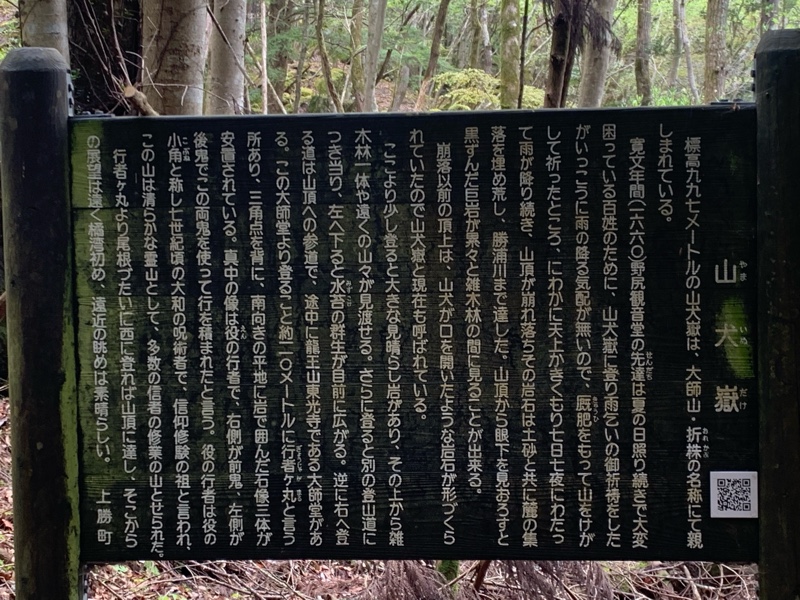 山犬嶽
やまいぬだけ
標高九九七メートルの山犬嶽は、大師山、折株の名称にて親
おれかぶ
しまれている。
寛文年間(一六六〇)野尻観音堂の先達は夏の日照り続きで大変
せんだち
困っている百姓のために、山犬嶽に登り雨乞いの御祈祷をした
がいっこうに雨の降る気配が無いので、厩肥をもって山をけが
きゅうひ
して祈ったところ、にわかに天上かきくもり七日七夜にわたっ
て雨が降り続き、山頂が崩れ落ちその岩石は土砂と共に麓の集
落を埋め荒し、勝浦川まで達した。山頂から眼下を見おろすと
黒ずんだ巨岩が累々と雑木林の間に見ることが出来る。
崩落以前の頂上は、山犬が口を開いたような岩石が形づくら
れていたので山犬嶽と現在も呼ばれている。
ここより少し登ると大きな見晴らし岩があり、その上から雑
木林一体や遠くの山々が見渡せる。さらに登ると別の登山道に
つき当り、左へ下ると水苔の群生が目前に広がる。逆に右へ登
る道は山頂への参道で、途中に龍王山東光寺である大師堂があ
る。この大師堂より登ること約二〇メートルに行者ヶ丸と言う
ぎょうじゃがまる
所あり、三角点を背に、南向きの平地に岩で囲んだ石像三体が
安置されている。真中の像は役の行者で、右側が前鬼、左側が
えん
後鬼でこの両鬼を使って行を積まれたと言う。役の行者は役の
小角と称し七世紀頃の大和の呪術者で、信仰修験の祖と言われ、
こづぬ
この山は清らかな霊山として、多数の信者の修業の山とせられた。
行者ヶ丸より尾根づたいに西に登れば山頂に達し、そこから
の展望は遠く橘湾初め、遠近の眺めは素晴らしい。
上勝町